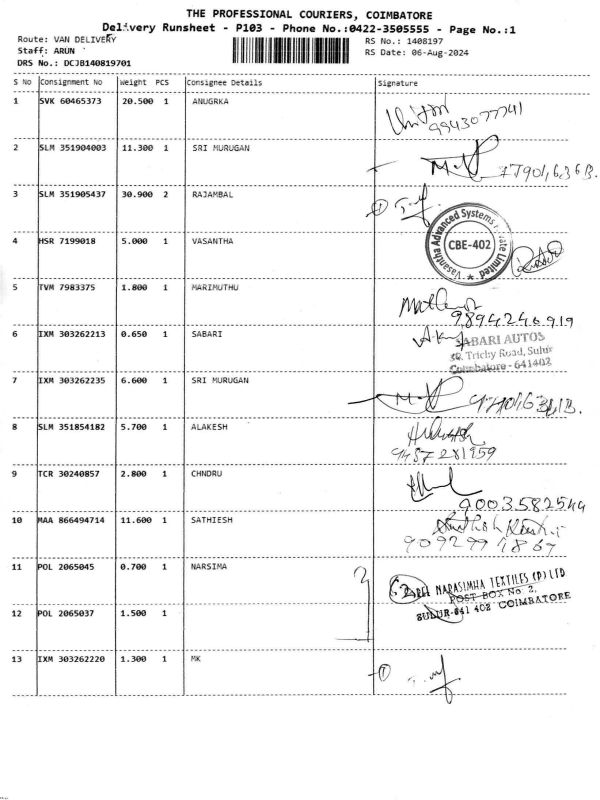 THE PROFESSIONAL COURIERS, COIMBATORE
Delivery Runsheet - P103 - Phone No.:0422-3505555 - Page No.:1
Route: VAN DELIVERY RS No.: 1408197
Staff: ARUN RS Date: 06-Aug-2024
DRS No.: DCJB140819701
S No Consignment No Weight PCS Consignee Details Signature
1 SVK 60465373 20.500 1 ANUGRKA
9943077741
2 SLM 351904003 11.300 1 SRI MURUGAN
3 SLM 351905437 30.900 2 RAJAMBAL
Vasantha Advanced Systems Private Limited
CBE-402
4 HSR 7199018 5.000 1 VASANTHA
5 TVM 7983375 1.800 1 MARIMUTHU
9894246919
6 IXM 303262213 0.650 1 SABARI
SABARI AUTOS
Trichy Road, Sulur
Coimbatore - 641402
7 IXM 303262235 6.600 1 SRI MURUGAN
8 SLM 351854182 5.700 1 ALAKESH
9437281959
9 TCR 30240857 2.800 1 CHNDRU
9003582544
10 MAA 866494714 11.600 1 SATHIESH
11 POL 2065045 0.700 1 NARSIMA
NARASIMHA TEXTILES (P) LTD
POST BOX No 2,
SULUR-641 402 COIMBATORE
12 POL 2065037 1.500 1
13 IXM 303262220 1.300 1 MK